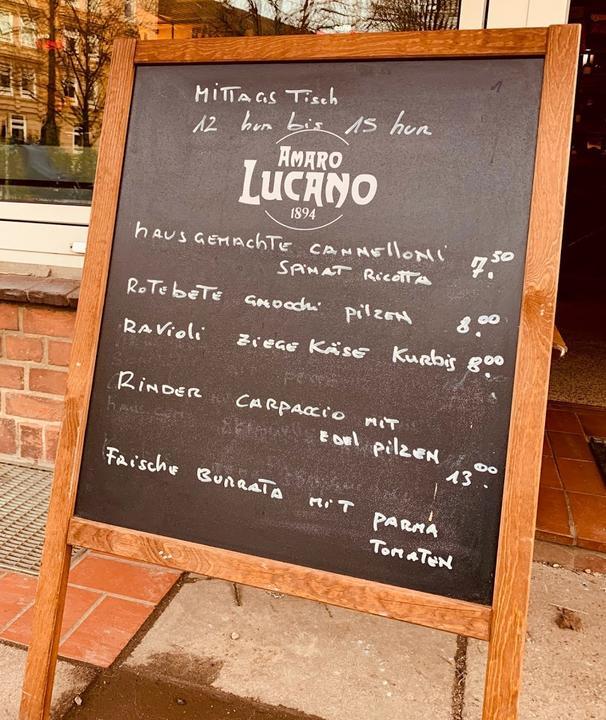 MITTAGS Tisch
12 hur bis 15 hur
AMARO
LUCANO
1894
hAUSGEMACHTE CANNELLONI
SPINAT RICOTTA 7.50
ROTEBETE GNOCCHI PILZEN 8.00
RAVIOLI ZIEGE KÄSE KURBIS 8.00
RINDER CARPACCIO MIT
EDEL PILZEN
13.00
FRISCHE BURRATA MIT PARMA
TOMATEN